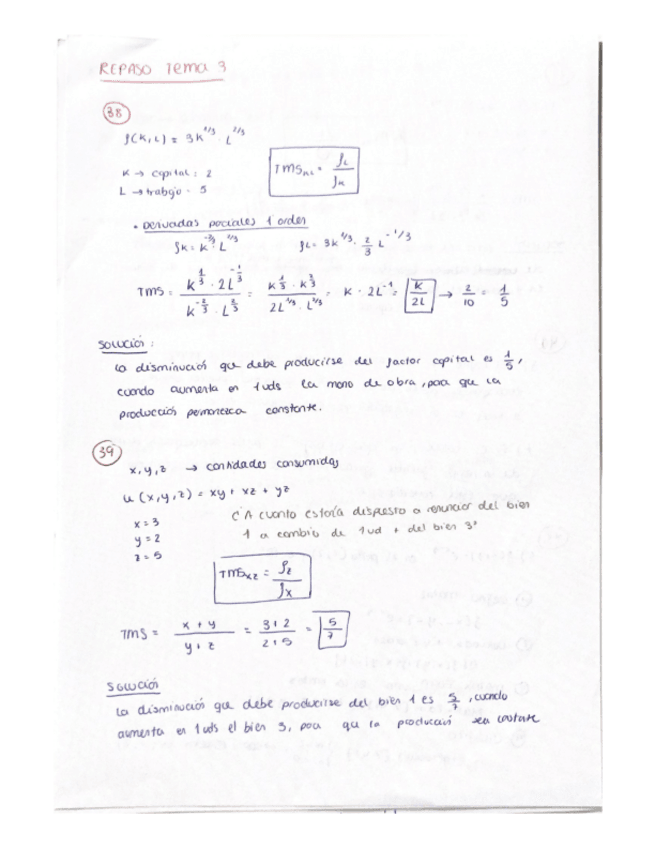 REPASO Tema 3
38
f(K,L) = 3K^1/3 · L^2/3
K → capital: 2
L → trabajo = 5
TMS_KL = f_L / f_K
• Derivadas parciales 1 orden
f_K = K^-2/3 · L^2/3    f_L = 3K^1/3 · 2/3 L^-1/3
TMS = (K^1/3 · 2L^-1/3) / (K^-2/3 · L^2/3) = (K^1/3 · K^2/3) / (2L^1/3 · L^2/3) = K · 2L^-1 = K/2L → 2/10 = 1/5
Solución:
La disminución que debe producirse del factor capital es 1/5,
cuando aumenta en 1 uds la mano de obra, para que la
producción permanezca constante.
39
x, y, z → cantidades consumidas
u (x,y,z) = xy + xz + yz
x = 3
y = 2
z = 5
¿A cuanto estaría dispuesto a renunciar del bien
1 a cambio de 1 ud + del bien 3?
TMS_xz = f_z / f_x
TMS = (x + y) / (y + z) = (3 + 2) / (2 + 5) = 5/7
Solución
La disminución que debe producirse del bien 1 es 5/7, cuando
aumenta en 1 uds el bien 3, para que la producción sea constante